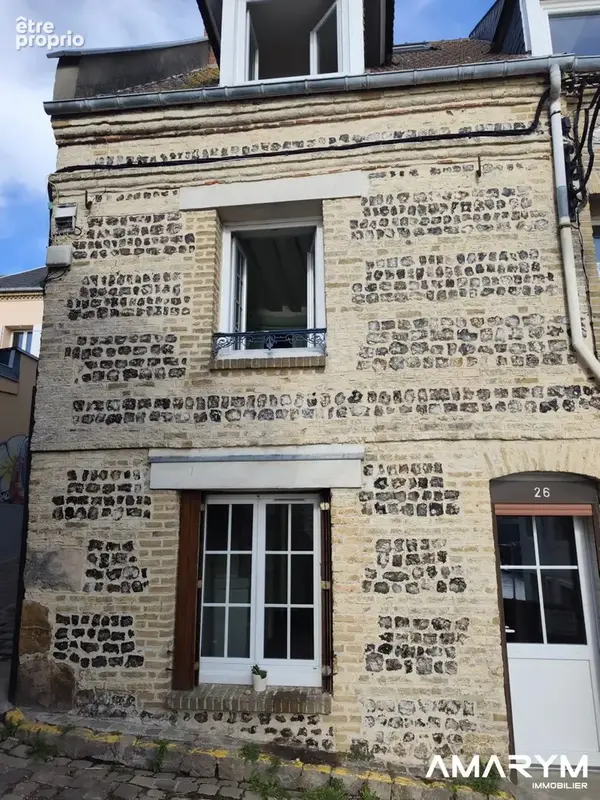 être
propriO
26
AMARYM
IMMOBILIER